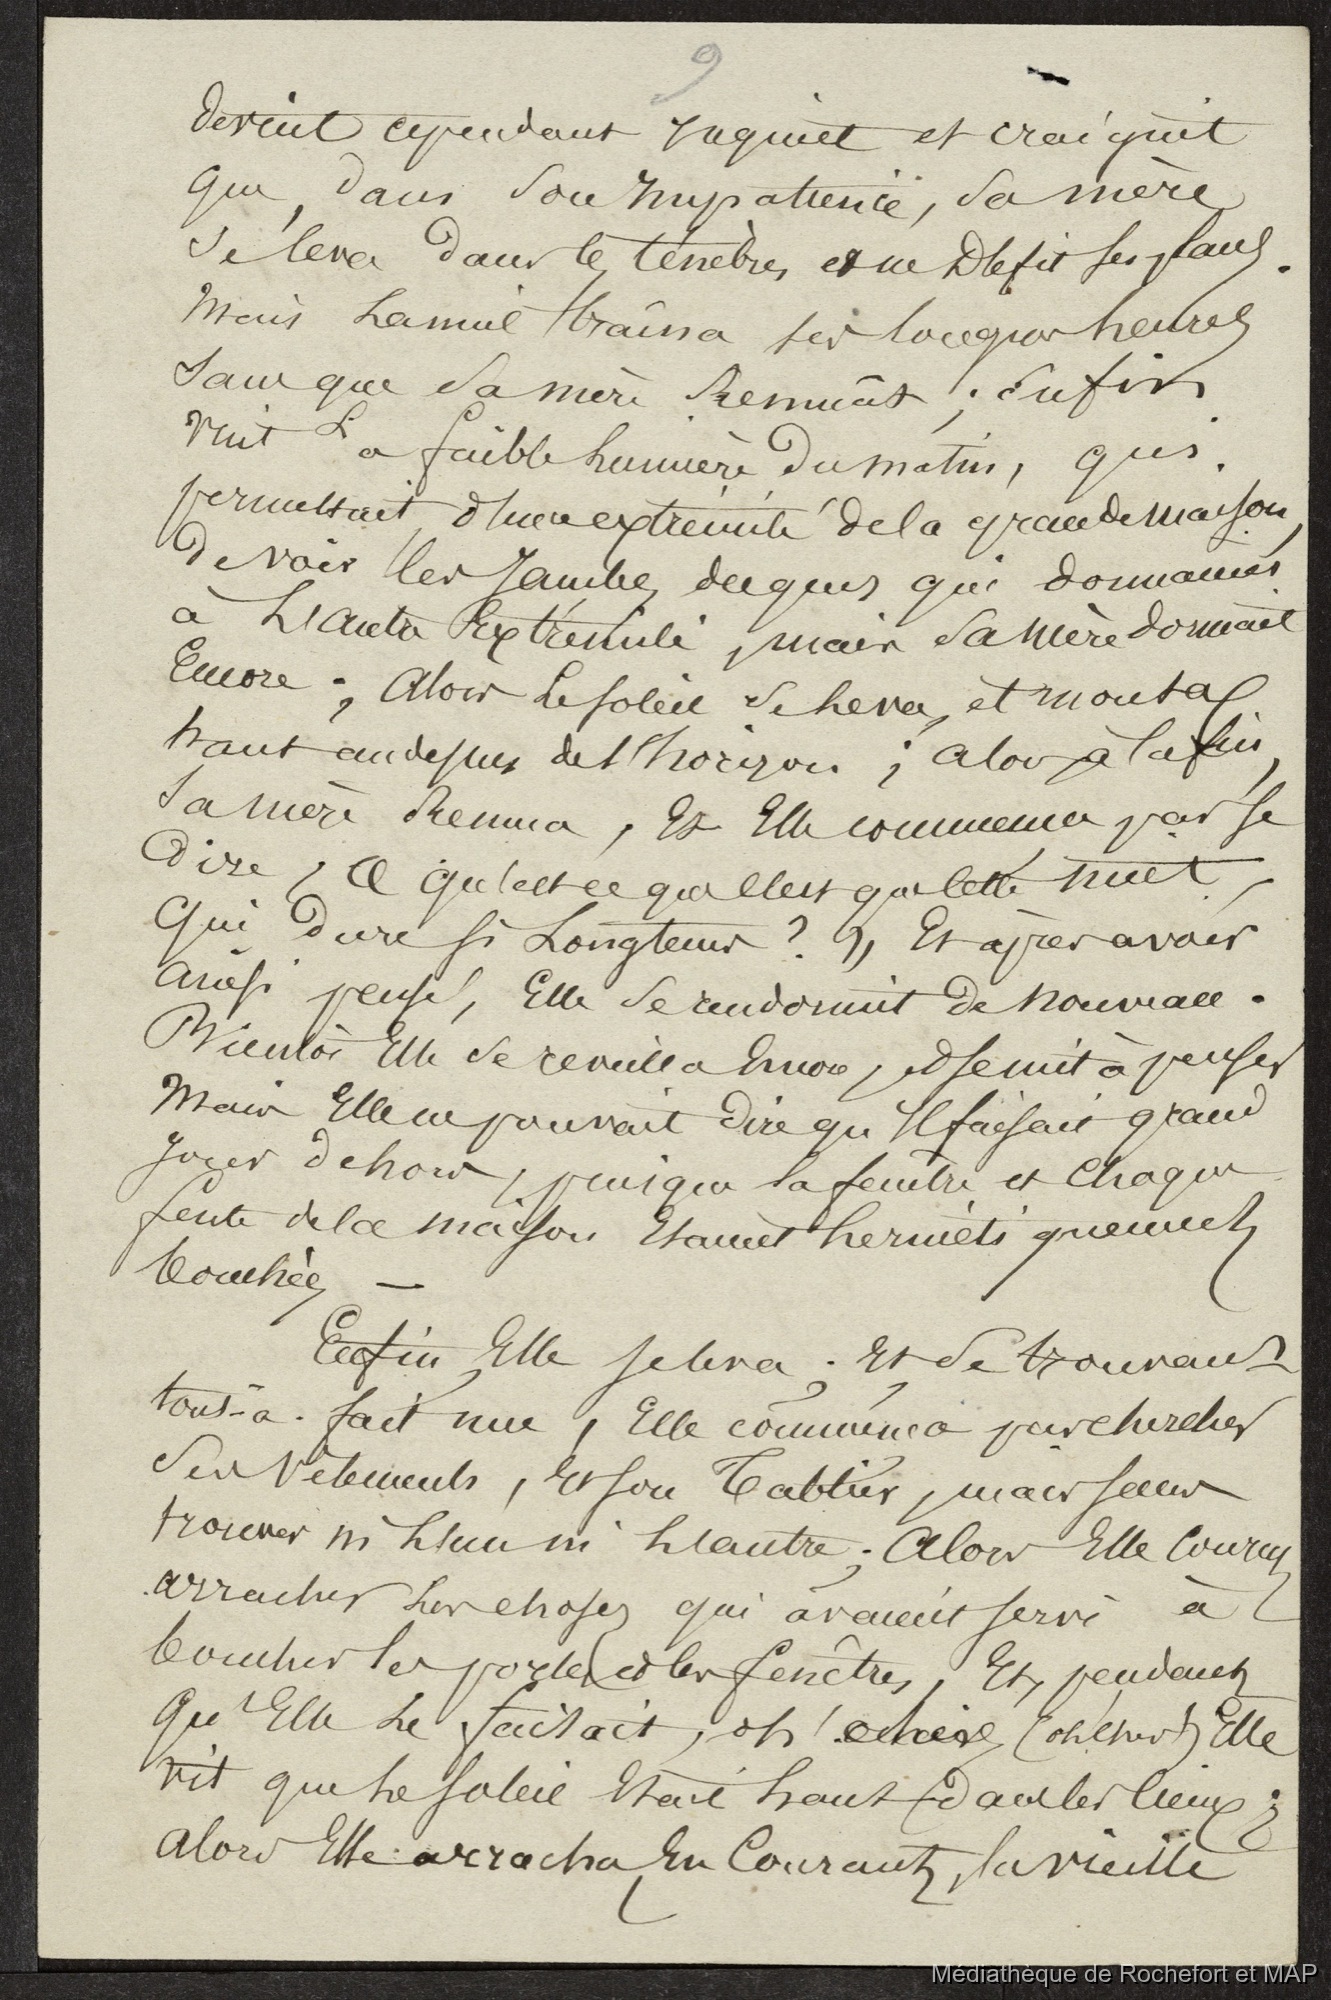 9
devint cependant Inquiet et craignit
que, dans son Impatience, sa mère
se leva dans les ténèbres et ne défit ses plans.
Mais La nuit traîna ses longues heures
sans que sa mère Remuât ; Enfin
vint La faible Lumière du matin, qui
permettait d'une extrémité de la grande maison,
de voir les Jambes de ceux qui dormaient
à L'autre Extrémité, mais sa mère dormait
Encore ; Alors Le soleil se Leva, et monta
haut au dessus de l'horizon ; alors à la fin,
sa mère Remua, Et Elle commença par se
dire, « qu'est ce que c'est que cette nuit,
qui dure si Longtems ? » Et après avoir
ainsi pensé, Elle se rendormit de nouveau.
Bientôt Elle se reveilla Encore, et se mit à penser
Mais Elle ne pouvait dire qu'Il faisait grand
Jour dehors, puisque la fenêtre et chaque
fente de la maison Etaient herméti quement
bouchées —
Enfin Elle se leva ; Et se trouvant
tout-à-fait nue, Elle commença par chercher
ses vêtements, Et son Tablier, mais sans
trouver ni L'un ni L'autre ; Alors Elle Courut
arracher Les choses qui avaient servi à
boucher les portes et les fenêtres, Et, pendant
qu'Elle Le faisait, oh! (oh! cher!) Elle
vit que Le soleil Etait haut dans les Cieux ;
alors Elle arracha En Courant, la vieille
Médiathèque de Rochefort et MAP